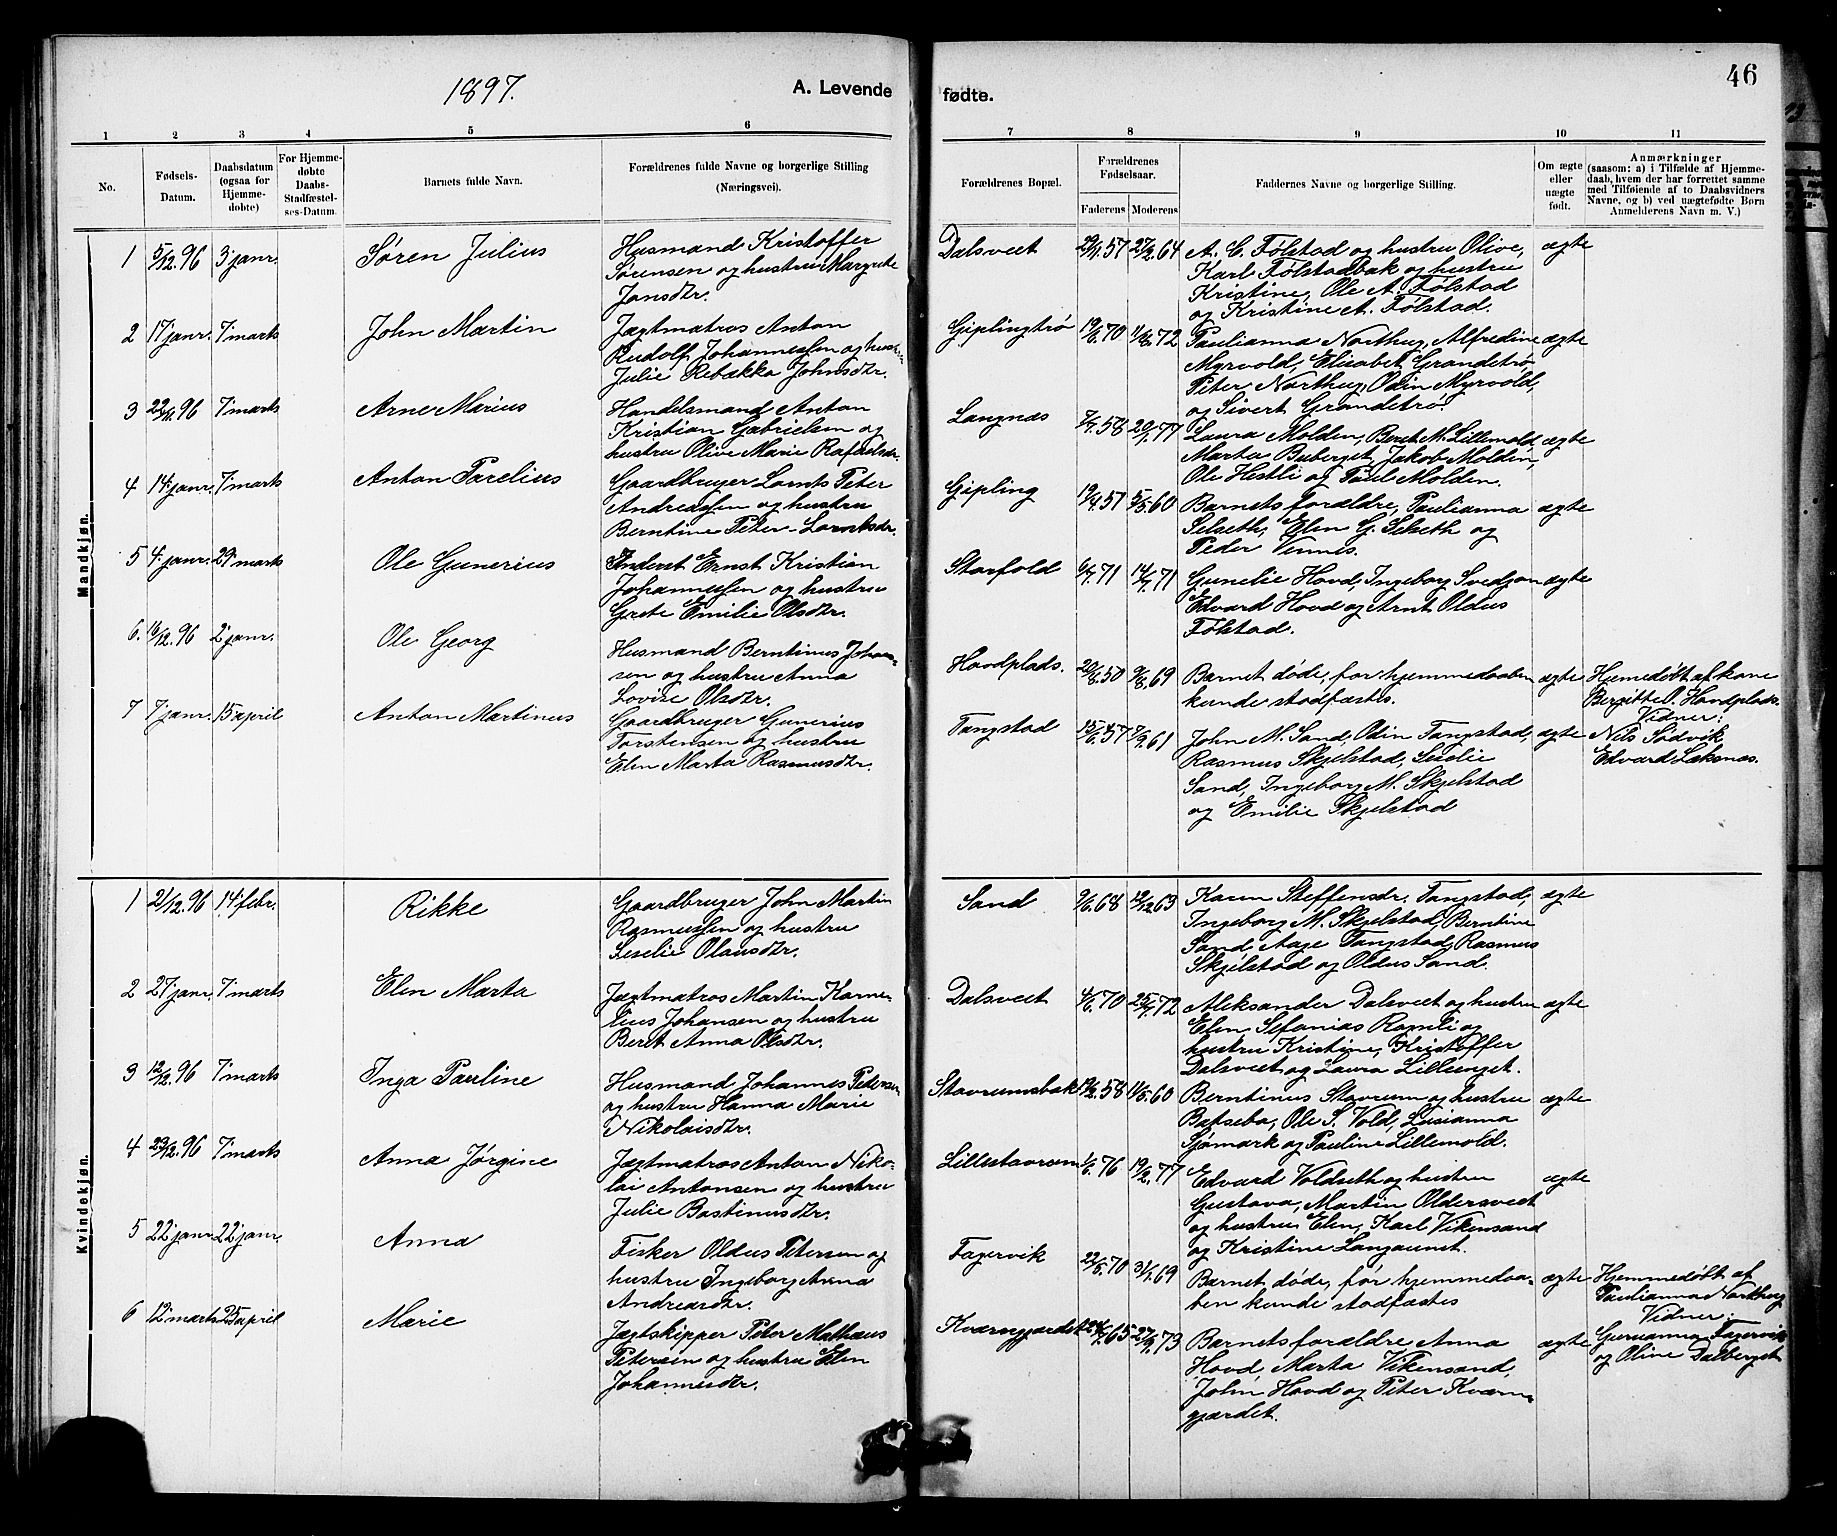 1897.
A. Levende
fødte.
46
1 2 3 4 5 6 7 8 9 10 11
No.
Fødsels-
Datum.
Daabsdatum
(ogsaa for
Hjemme-
døbte)
For Hjemme-
døbte
Daabs-
Stadfæstel-
ses-Datum.
Barnets fulde Navn.
Forældrenes fulde Navne og borgerlige Stilling
(Næringsvei).
Forældrenes Bopæl.
Forældrenes
Fødselsaar.
Faderens Moderens
Faddernes Navne og borgerlige Stilling.
Om ægte
eller
uægte
født.
Anmærkninger
(saasom: a) i Tilfælde af Hjemme-
daab, hvem der har forrettet samme
med Tilføiende af to Daabsvidners
Navne, og b) ved uægtefødte Børn
Anmelderens Navn m. V.)
Mandkjøn.
1 5/12.96 3' janr. Søren Julius
Husmand Kristoffer
Sørensen og hustru Margrete
Jansdtr.
Dalsveet 57 27/2.64
A. C. Følstad og hustru Olive,
Karl Følstadbak og hustru
Kristine, Ole A. Følstad
og Kristine A. Følstad.
ægte
2 17' janr. 7' marts John Martin
Jægtmatros Anton
Rudolf Johannessen og hustru
Julie Rebækka Johnsdtr.
Giplingtrø 19/6.70 11/8.72
Paulianna Northug, Alfredine
Myrvold, Elisabet Grandetrø,
Peter Northug, Odin Myrvold,
og Sivert Grandetrø.
ægte
3 22/11.96 7' marts Arne Marius
Handelsmand Anton
Kristian Gabrielsen og
hustru Olive Marie Rafaelsdr.
Langnæs 7/7.58 20/1.77
Laura Molden, Beret M. Lillemold,
Marta Buberget, Jakob Molden,
Ole Hestli og Paul Molden.
ægte
4 14' janr. 7' marts Anton Parelius
Gaardbruger Lornts Peter
Andreassen og hustru
Berntine Peter-Lorntsdr.
Gipling 19/4.57 5/5.60
Barnets forældre, Paulianna
Selseth, Elen G. Selseth og
Peder Vennes.
ægte
5 4' janr. 29' marts Ole Gunerius
Inderst Ernst Kristian
Johannessen og hustru
Grete Emilie Olsdtr.
Storfold 71 14/7.71
Gunelie Hovd, Ingeborg Svedjan
Edvard Hovd og Arnt Oldus
Følstad.
ægte
6. 16/12.96 2' janr. Ole Georg
Husmand Berntinus Johan-
sen og hustru Anna
Lovise Olsdtr.
Hovdplads. 20/8.50 9/8.69
Barnet døde, før hjemmedaaben
kunde stadfæstes.
ægte
Hjemedøbt af kone
Bergitte O. Hovdplads.
Vidner:
Nils Sødvik
Edvard Laksnæs.
7 7' janr. 15' april Anton Martinus
Gaardbruger Gunerius
Torstensen og hustru
Elen Marta Rasmusdtr.
Tangstad 15/6.57 7/9.61
John M. Sand, Odin Tangstad,
Rasmus Skjelstad, Seselie
Sand, Ingeborg M. Skjelstad
og Emilie Skjelstad
ægte
Kvindekjøn.
1 21/12.96 14' febr. Rikke
Gaardbruger John Martin
Rasmussen og hustru
Seselie Olausdtr.
Sand 9/6.68 19/12.63
Karen Steffensdr. Tangstad,
Ingeborg M. Skjelstad, Berntine
Sand, Aage Tangstad, Rasmus
Skjelstad og Oldus Sand.
ægte
2 27' janr. 7' marts Elen Marta
Jægtmatros Martin Karne-
lius Johansen og hustru
Beret Anna Olsdtr.
Dalsveet 4/6.70 25/1.72
Aleksander Dalsveet og hustru
Elen, Sefanias Ramli og
hustru Kristine, Kristoffer
Dalsveet og Laura Lillenget.
ægte
3 12/12.96 7' marts Inga Pauline
Husmand Johannes Petersen
og hustru Hanna Marie
Nikolaisdtr.
Stavrumsbak 19/2.58 11/5.60
Berntinus Stavrum og hustru
Batseba, Ole S. Vold, Lusianna
Sjømark og Pauline Lillemold.
ægte
4 29/12.96 7' marts Anna Jørgine
Jægtmatros Anton Niko-
lai Antonsen og hustru
Julie Bastinusdtr.
Lillestavrum 1/6.76 19/2.77
Edvard Voldseth og hustru
Gustava, Martin Oldersveet
og hustru Elen, Karl Vikensand
og Kristine Langaunet.
ægte
5 22' janr. 22' janr. Anna
Fisker Oldus Petersen og
hustru Ingeborg Anna
Andreasdtr.
Fagervik 22/5.70 31/1.69
Barnet døde, før hjemmedaa-
ben kunde stadfæstes
ægte
Hjemmedøbt af
Paulianna Northug
Vidner:
Gurianna Fagervik
og Oline Dalberget
6 12' marts 25' april Marie
Jægtskipper Peter Mathæus
Petersen og hustru Elen
Johannesdtr.
Kværngjærdet 65 27/9.73
Barnets forældre, Anna
Hovd, Marta Vikensand,
John Hovd og Peter Kværn-
gjærdet.
ægte